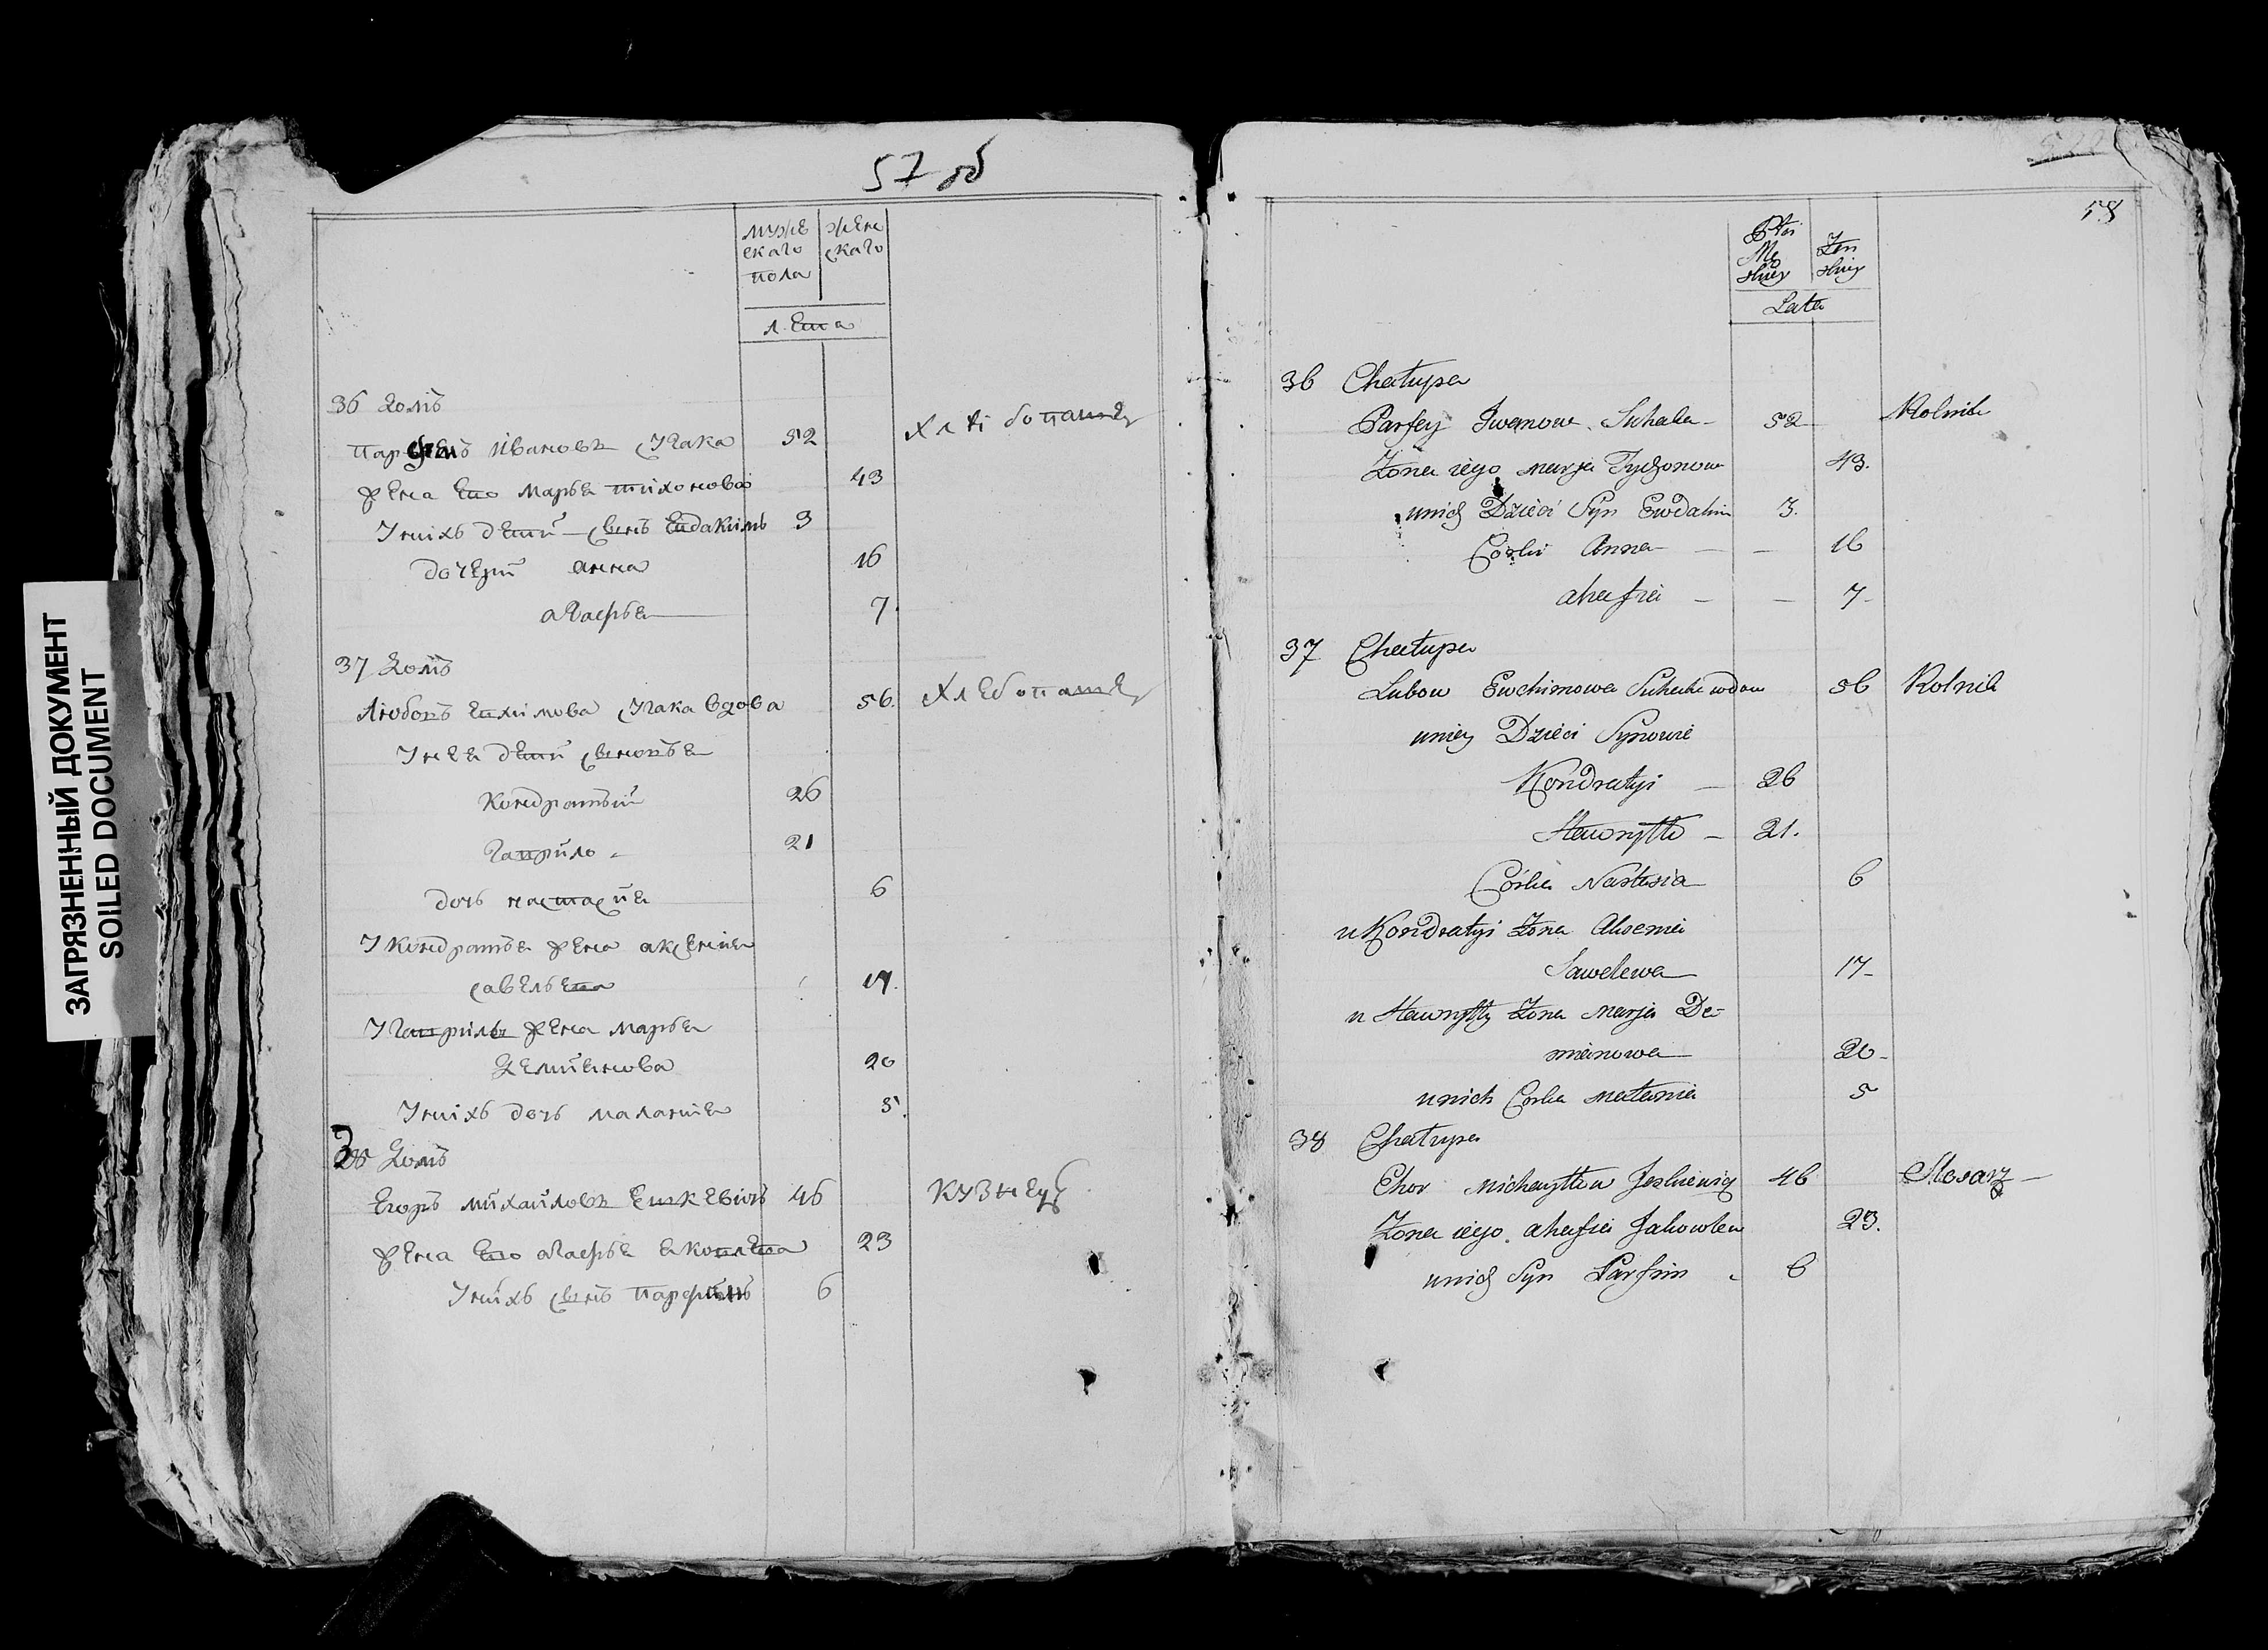 57 об
муже
скаго
пола
жен
скаго
лета
36 Домъ
Парфенъ Ивановъ Сугака 52 Хлебопашец
Жена его Марья Тихонова 43
У нихъ детй сынъ Евдакимъ 3
дочерй анна 16
агафья 7
37 Домъ
Любовъ Евхимова Сугака вдова 56 Хлебопашец
У нея детй сыновья
Кондратий 26
Гаврило 21
дочь настасия 6
У Кондратья жена аксения
савельева 17
У Гаврилы жена Марья
Демиянова 20
У нихъ дочь малания 5
38 Домъ
Егоръ Михайловъ Ешкевичъ 46 Кузнец
Жена его агафья яковлева 23
У нихъ сынъ Парфенъ 6
58
Płci
Mę
skiey
Żen
skiey
Lata
36 Chałupa
Parfey Iwanow Suhaka 52 Rolnik
Żona iego Marja Tychonow 43.
u nich Dzieci Syn Ewdakim 3.
Córki Anna 16
Ahafia 7
37 Chałupa
Lubow Ewchimowa Suhaka wdow 56 Rolnik
u niey Dzieci Synowie
Kondratyi 26
Hawryłło 21.
Córka Nastasia 6
u Kondratyi Żona Aksenia
Sawelewa 17
u Hawryłły Żona Marja De-
mianowa 20
u nich Córka Małania 5
38 Chałupa
Ehor Michayłłow Jeskiewicz 46 Slosarz
Żona iego Ahafia Jakowlew 23.
u nich Syn Parfim 6
ЗАГРЯЗНЕННЫЙ ДОКУМЕНТ
SOILED DOCUMENT